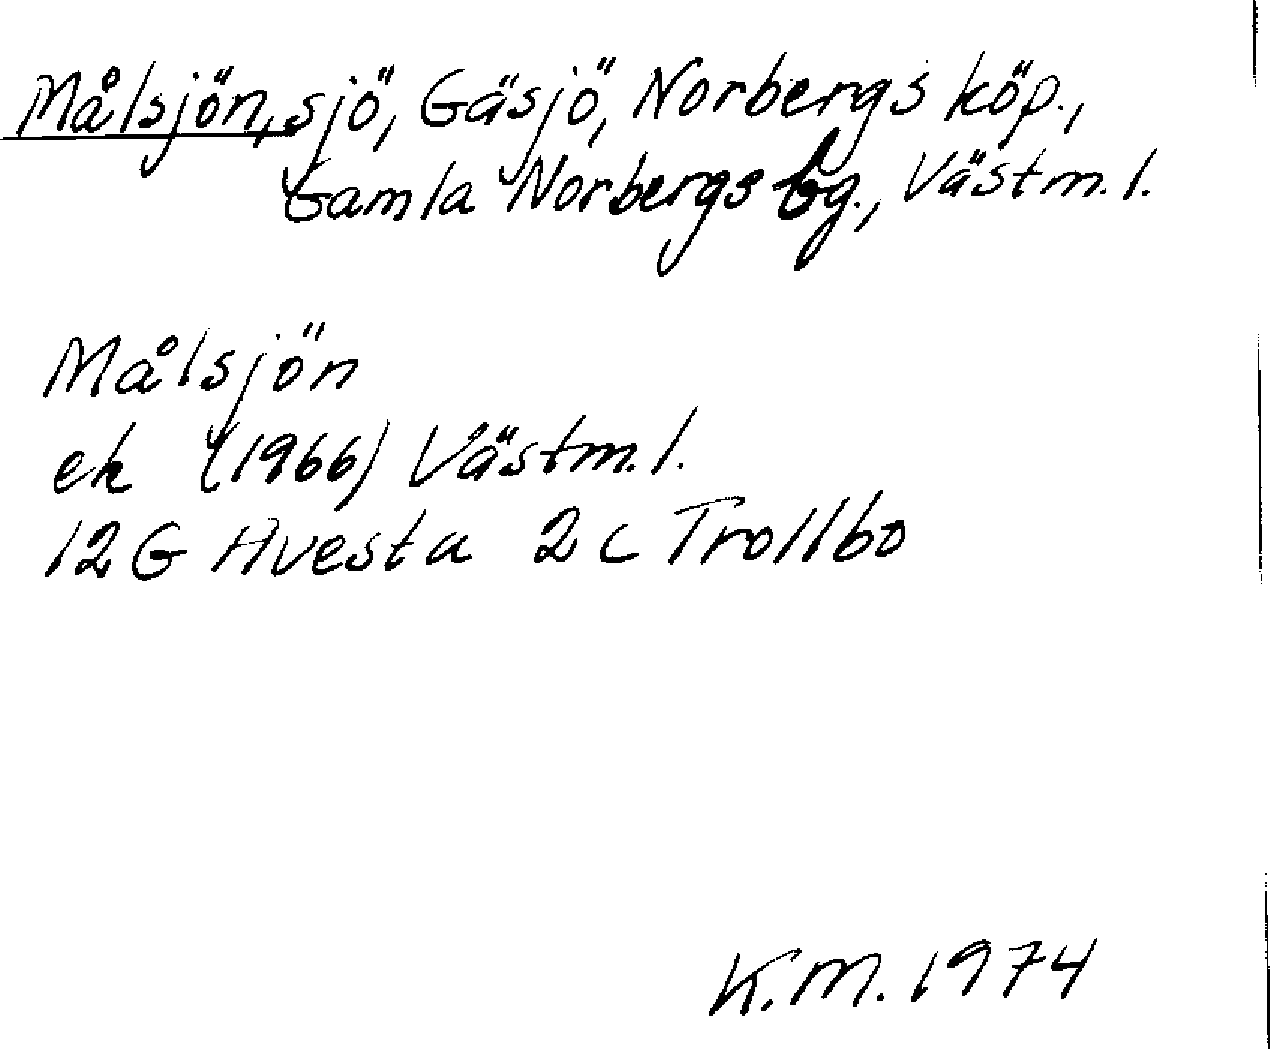 Målsjön, sjö, Gäsjö, Norbergs köp.,
Gamla Norbergs bg., Västm. l.
Målsjön
ek (1966) Västm. l.
12 G Avesta 2 c Trollbo
K.M. 1974